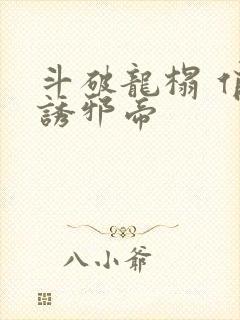 斗破龍榻
誘邪帝
八小爺